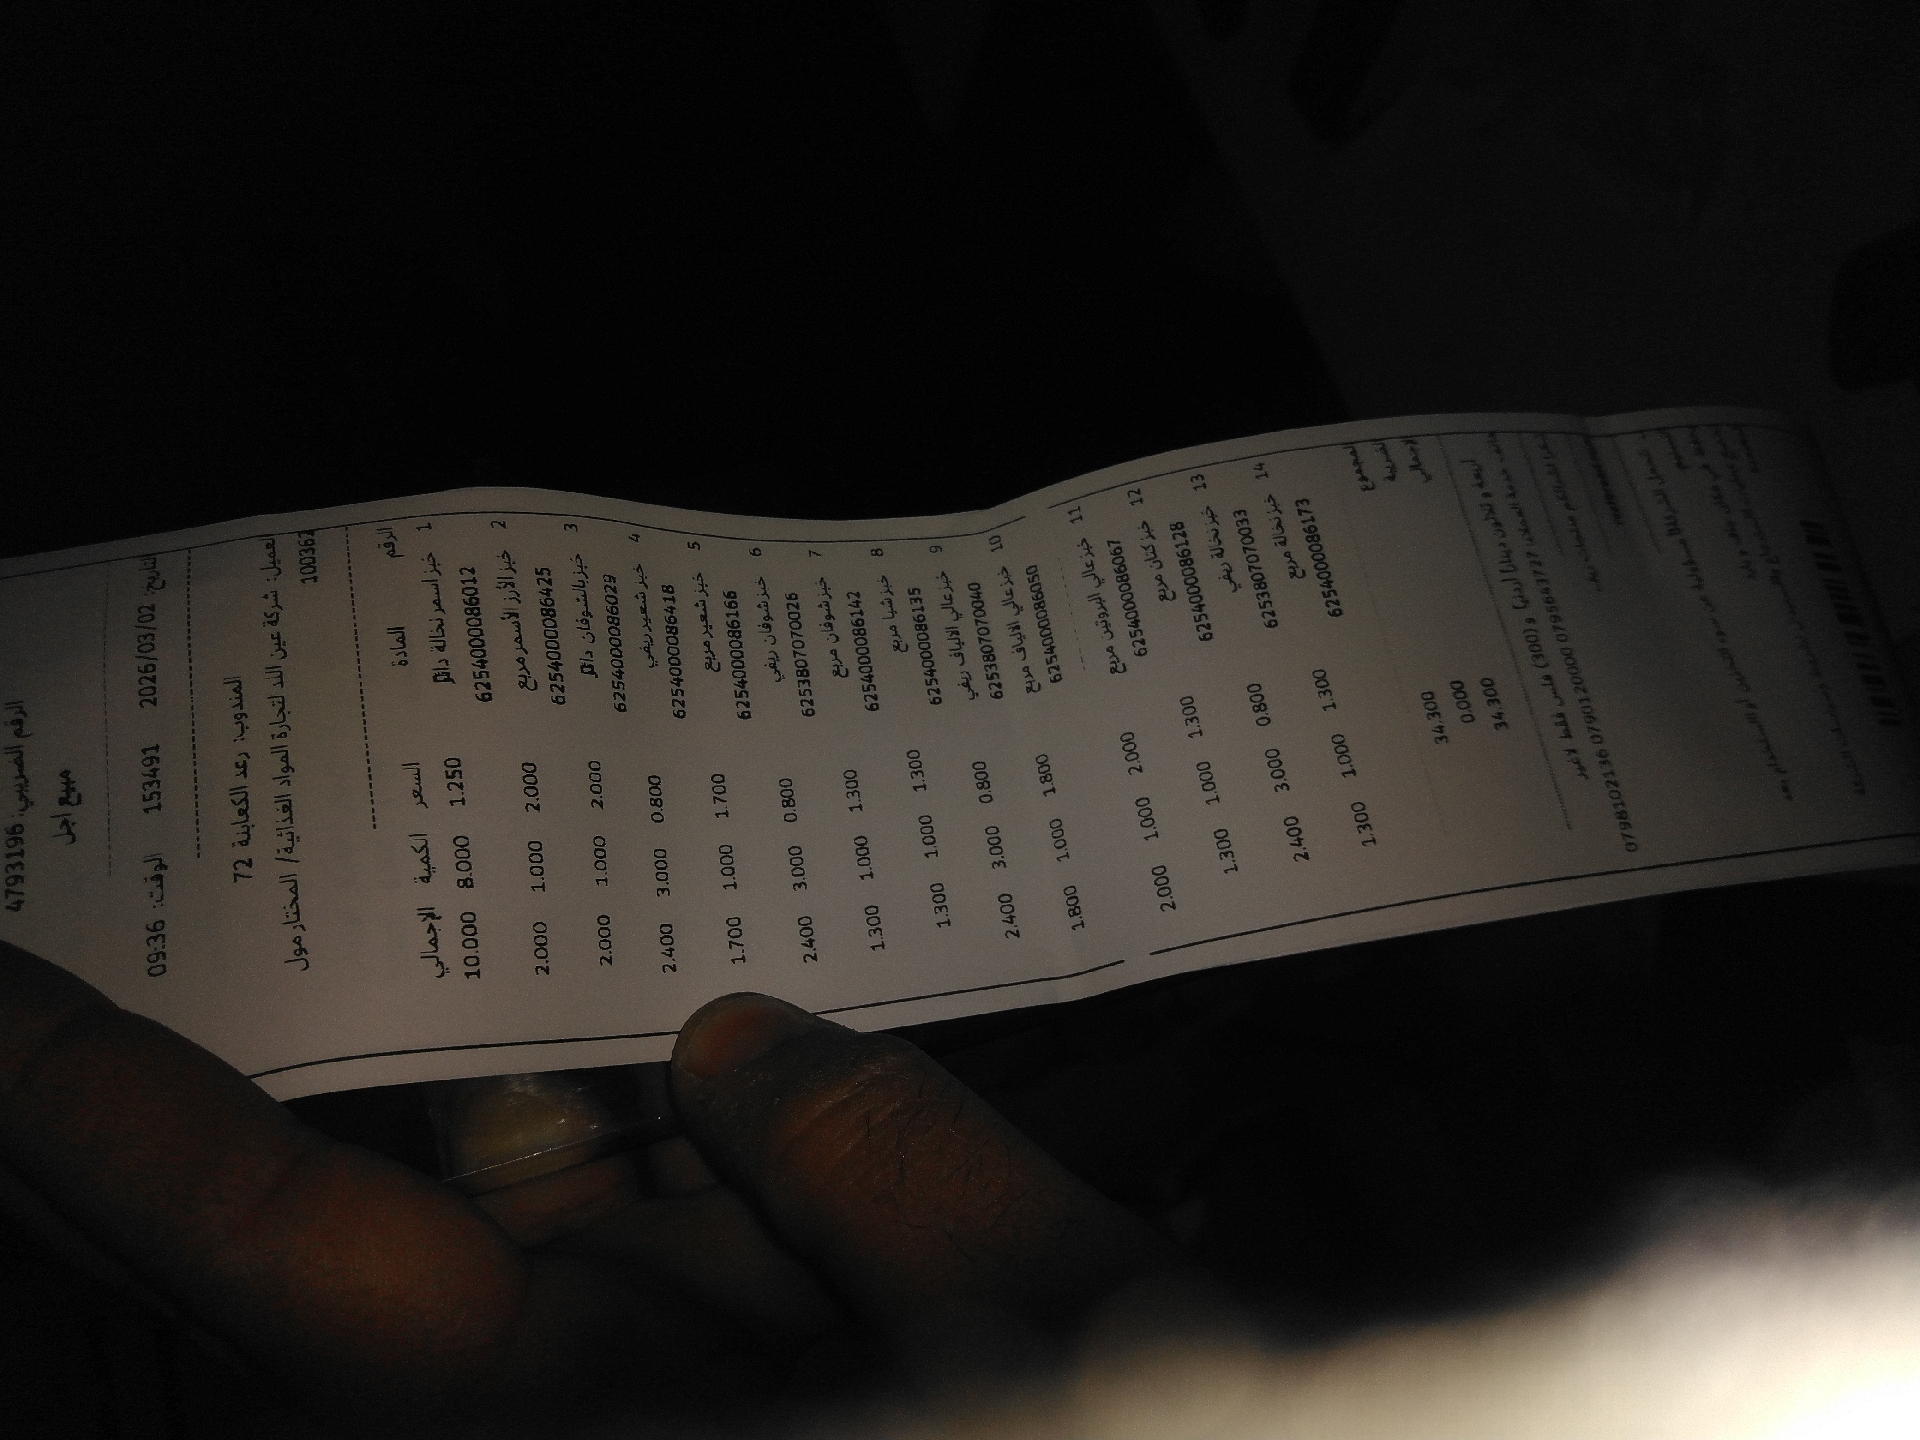 الرقم الضريبي: 4793196
مبيع اجل
التاريخ: 2026/03/02 153491 الوقت: 09:36
المندوب: رعد الكعابنة 72
العميل: شركة عين اللد لتجارة المواد الغذائية/ المختار مول
100362
الرقم المادة السعر الكمية الإجمالي
1 خبز اسمر نخالة دائر 1.250 8.000 10.000
6254000086012
2 خبز الأرز الأسمر مربع 2.000 1.000 2.000
6254000086425
3 خبز بالشوفان دائر 2.000 1.000 2.000
6254000086029
4 خبز شعير ريفي 0.800 3.000 2.400
6254000086418
5 خبز شعير مربع 1.700 1.000 1.700
6254000086166
6 خبز شوفان ريفي 0.800 3.000 2.400
6253807070026
7 خبز شوفان مربع 1.300 1.000 1.300
6254000086142
8 خبز شيا مربع 1.300 1.000 1.300
6254000086135
9 خبز عالي الالياف ريفي 0.800 3.000 2.400
6253807070040
10 خبز عالي الالياف مربع 1.800 1.000 1.800
6254000086050
11 خبز عالي البروتين مربع 2.000 1.000 2.000
6254000086067
12 خبز كتان مربع 1.300 1.000 1.300
6254000086128
13 خبز نخالة ريفي 0.800 3.000 2.400
6253807070033
14 خبز نخالة مربع 1.300 1.000 1.300
6254000086173
المجموع 34.300
الضريبة 0.000
الإجمالي 34.300
أربعة و ثلاثون دينارا أردنيا و (300) فلس فقط لاغير
هاتف خدمة العملاء: 0795643727 0790120000 0798102136